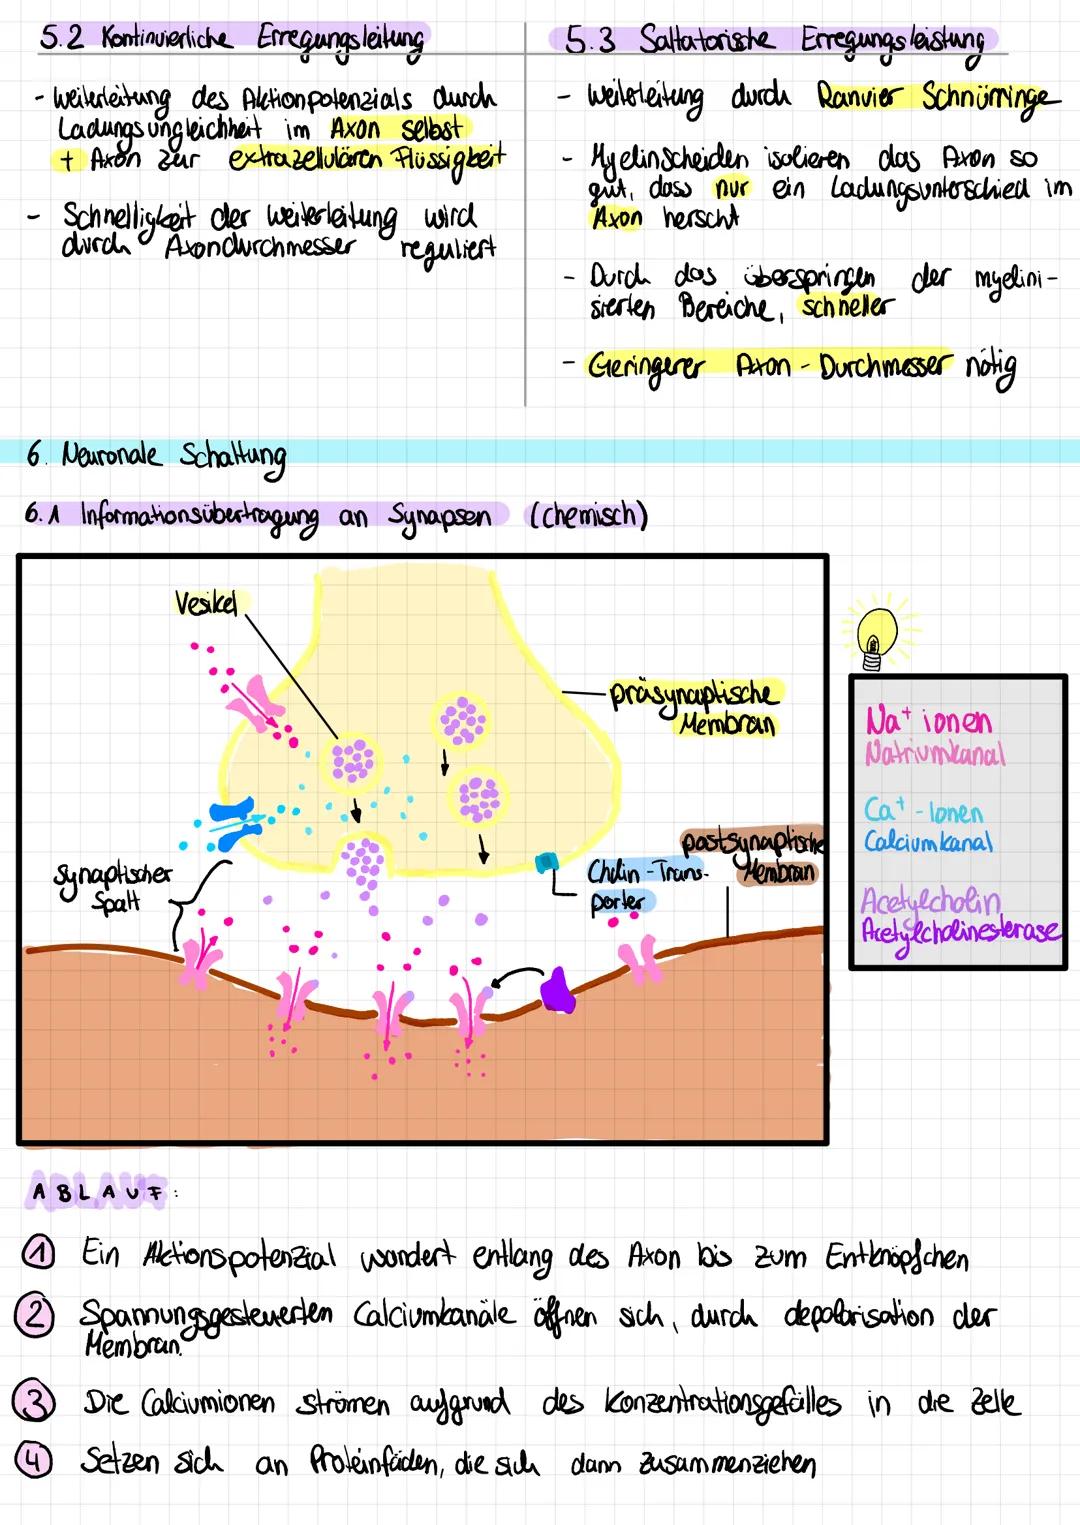 5.2 Kontinuierliche Erregungsleitung
- Weiterleitung des Aktionpotenzials durch
Ladungsungleichheit im Axon selbst
+ Axon zur extrazellulären Flüssigkeit
- Schnelligkeit der Weiterleitung wird
durch Axondurchmesser reguliert
5.3 Saltatorische Erregungsleistung
- Weiterleitung durch Ranvier Schnürringe
- Myelinscheiden isolieren das Axon so
gut, dass nur ein Ladungsunterschied im
Axon herscht
- Durch das überspringen der myelini-
sierten Bereiche, schneller
- Geringerer Axon-Durchmesser nötig
6. Neuronale Schaltung
6.1 Informationsübertragung an Synapsen (chemisch)
Vesikel
präsynaptische
Membran
postsynaptische
Membran
Cholin-Trans-
porter
synaptischer
Spalt
Na⁺ ionen
Natriumkanal
Ca⁺-Ionen
Calciumkanal
Acetylcholin
Acetylcholinesterase
ABLAUF:
1 Ein Aktionspotenzial wandert entlang des Axon bis zum Entknöpfchen
2 Spannungsgesteuerten Calciumkanäle öffnen sich, durch depolarisation der
Membran.
3 Die Calciumionen strömen aufgrund des Konzentrationsgefälles in die Zelle
4 Setzen sich an Proteinfäden, die sich dann zusammenziehen